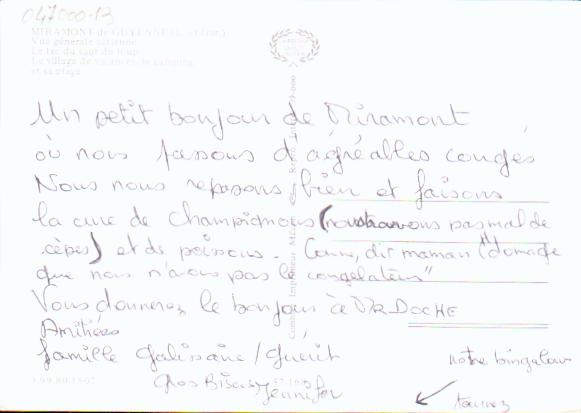 047000-13
MIRAMONT-de-GUYENNE (L.-et-Gar.)
Vue générale aérienne
Le lac du saut du loup
Le village de vacances, le camping
et sa plage
Un petit bonjour de Miramont
où nous passons d'agréables congés
Nous nous reposons bien et faisons
la cure de champignons (nous avons pas mal de
cèpes) et de poissons. Comme dit maman "domage
que nous n'avons pas le congelateur"
Vous donnerez le bonjour à Mr DOCHE
Amitiées
famille Galissaire / Guérit
Gros Bisous Jennifer
notre bungalow
tournez